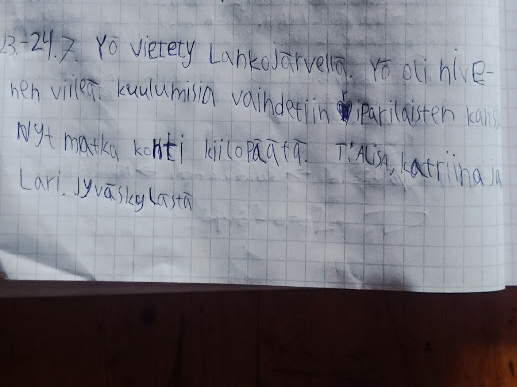 23.-24.7. Yö vietety Lankojärvellä. Yö oli hive-
nen viileä. kuulumisia vaihdetiin iparilaisten kans
Nyt matka kohti kiilopäätä. T: Alisa, katriina ja
Lari. Jyväskylästä